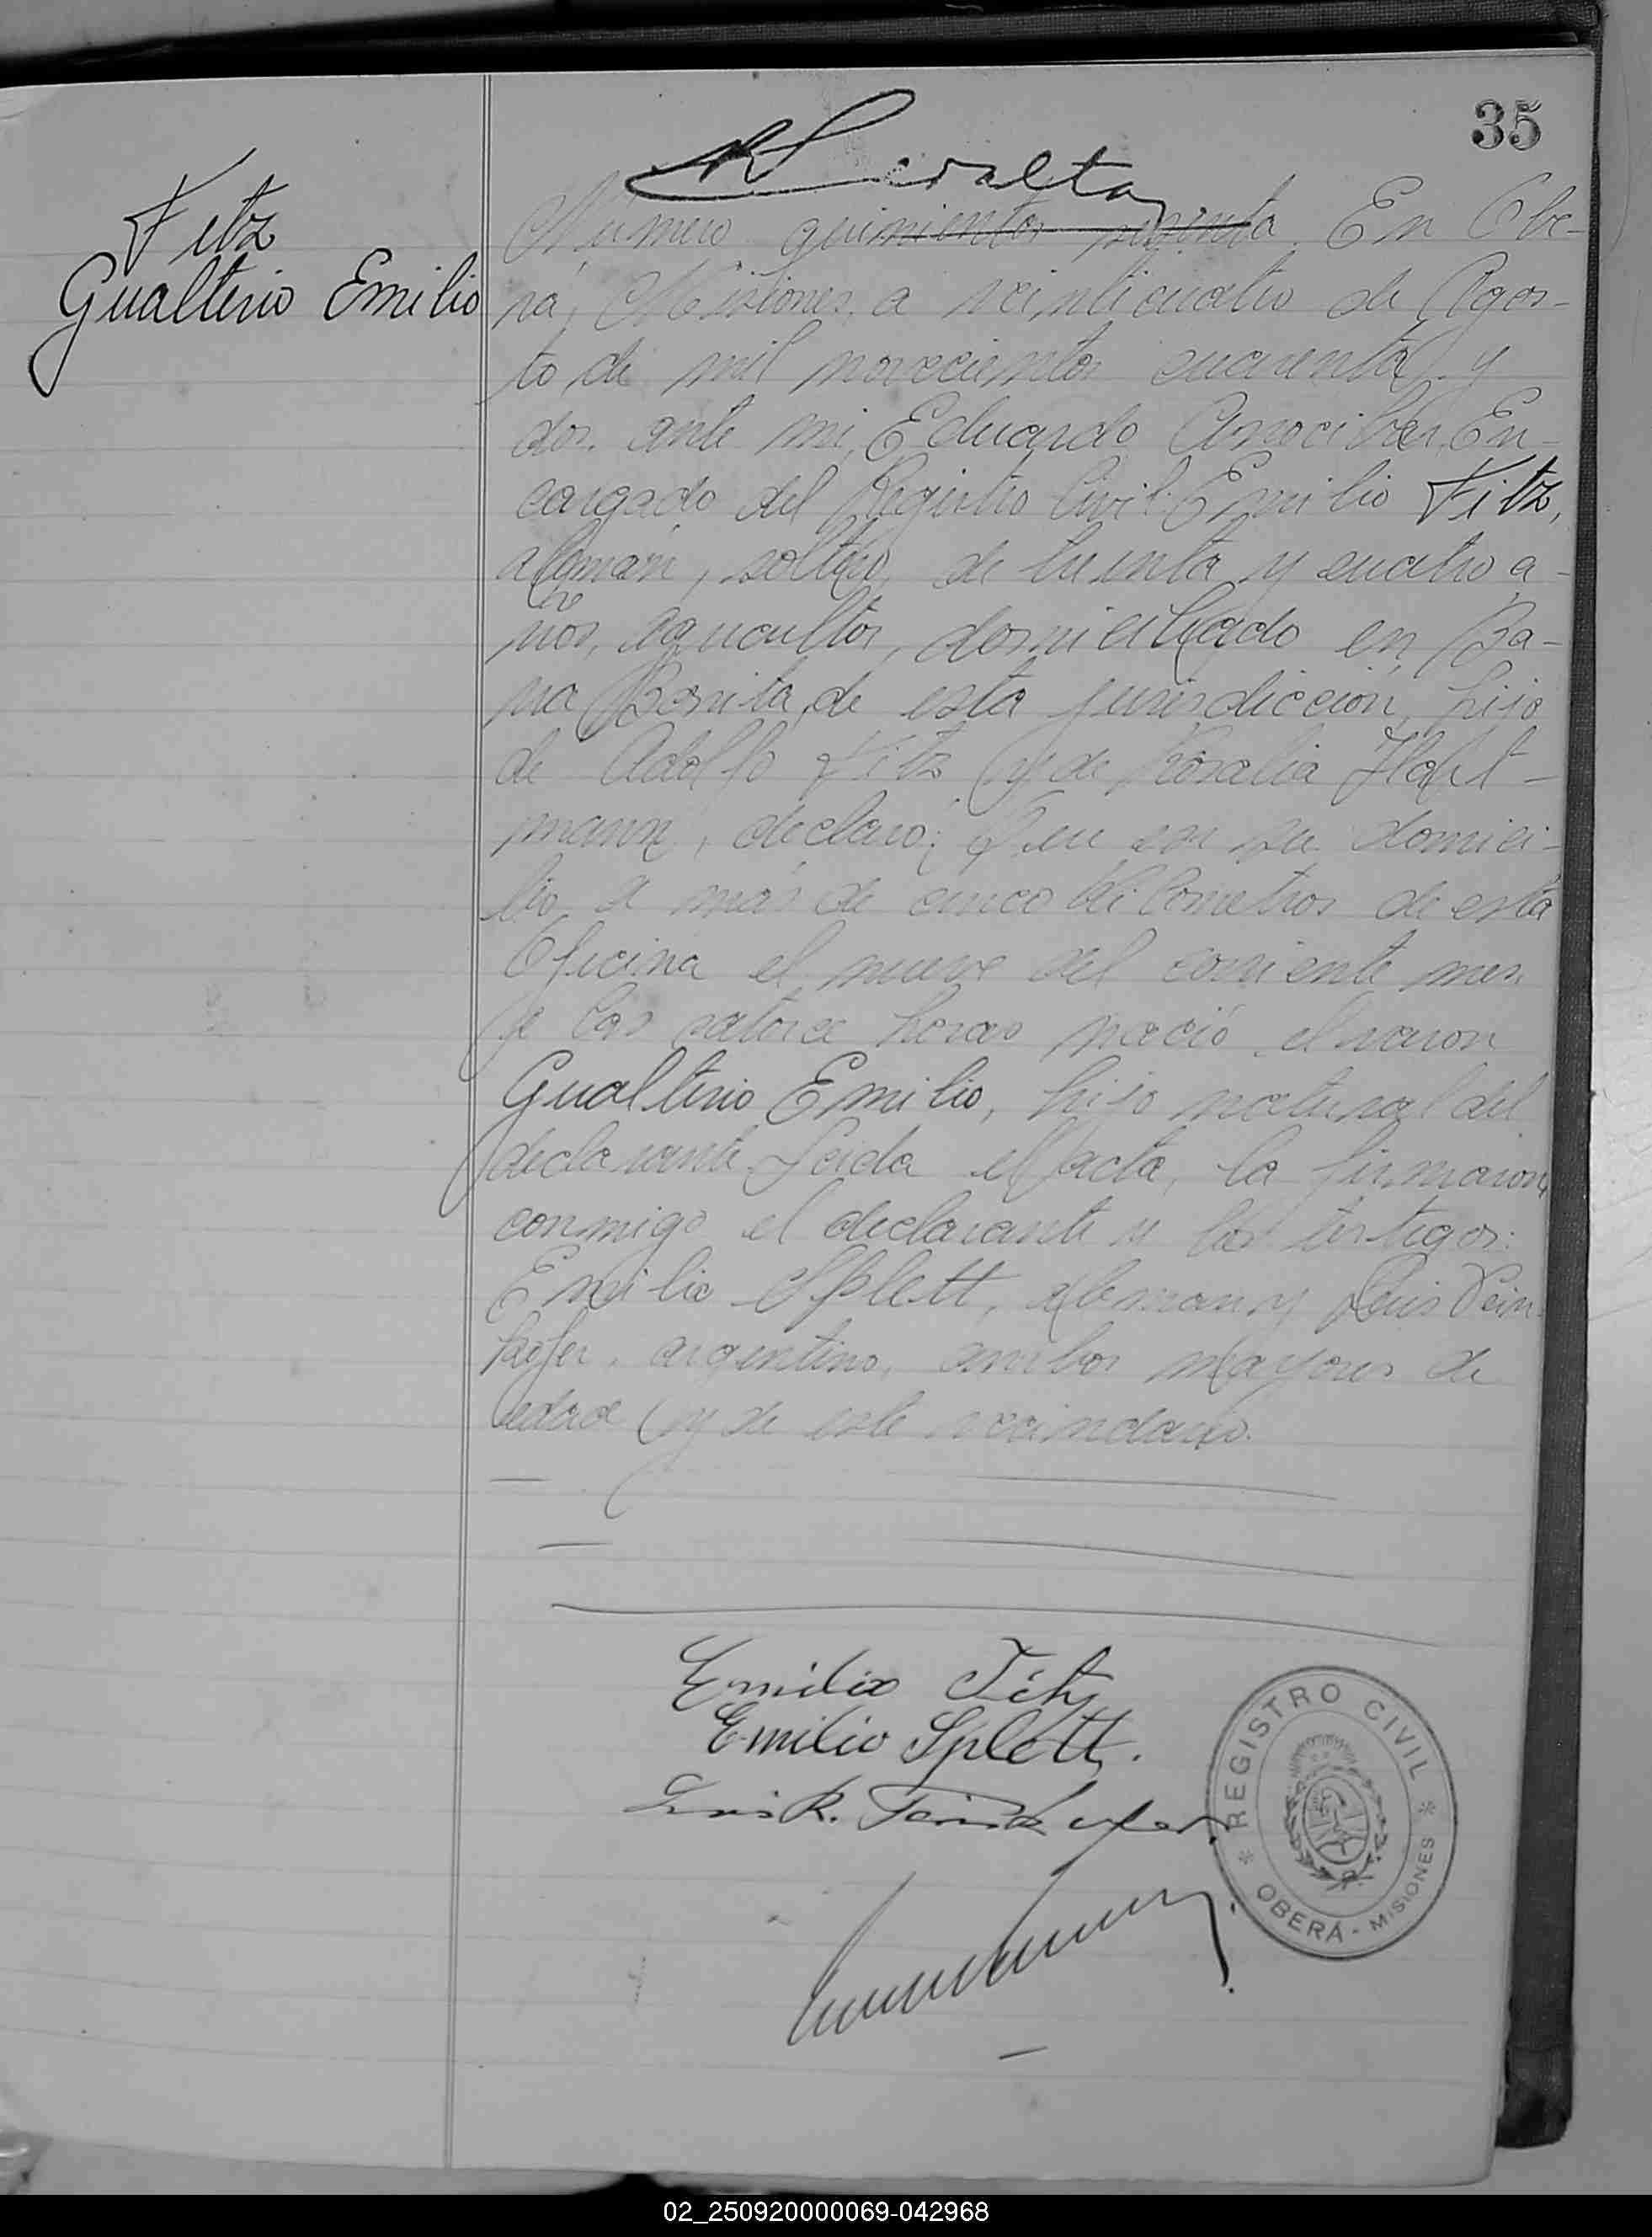 35
Peralta
Fitz
Gualterio Emilio
Número quinientos setenta. En Obe-
rá, Misiones, a veinticuatro de Agos-
to de mil novecientos cuarenta y
dos, ante mi, Eduardo En-
cargado del Registro Civil: Emilio Fitz,
alemán, soltero, de treinta y cuatro a-
ños, agricultor, domiciliado en Ba-
rra Bonita, de esta jurisdicción, hijo
de Adolfo Fitz y de Rosalia
mann, declaró: Que en su domici-
lio, a más de cinco kilómetros de esta
Oficina el nueve del corriente mes
y las catorce horas nació el varón
Gualterio Emilio, hijo natural del
declarante. Leida el acta, la firmaron
conmigo el declarante y los testigos:
Emilio Splett, aleman y Luis
argentino, ambos mayores de
edad y de este vecindario.
Emilio Fitz
Emilio Splett.
Luis R.
REGISTRO CIVIL
OBERÁ - MISIONES
02_250920000069-042968